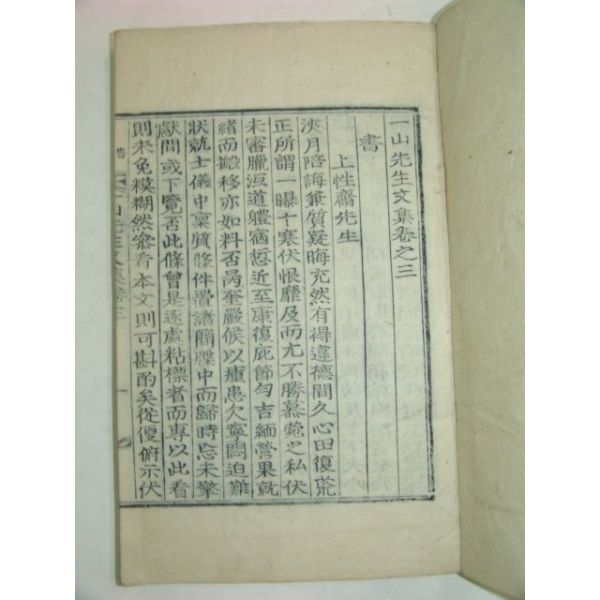 一山先生文集卷之三
書
上性齋先生
浹月陪誨兼質疑晦充然有得違德間久心田復荒
正所謂一曝十寒伏恨靡及而尤不勝慕菀之私伏
未審臘沍道體宿愆近至康復庇節勻吉緬營果就
緒而搬移亦如料否昺奎嚴候以瘧患欠寧悶迫難
狀就士儀中稟質條件置諸簡牒中而歸時忘未擎
獻間或下覽否此條曾是逐處粘標者而專以此看
則未免糢糊然叅看本文則可斟酌矣從便俯示伏
書 一山先生文集卷三 一